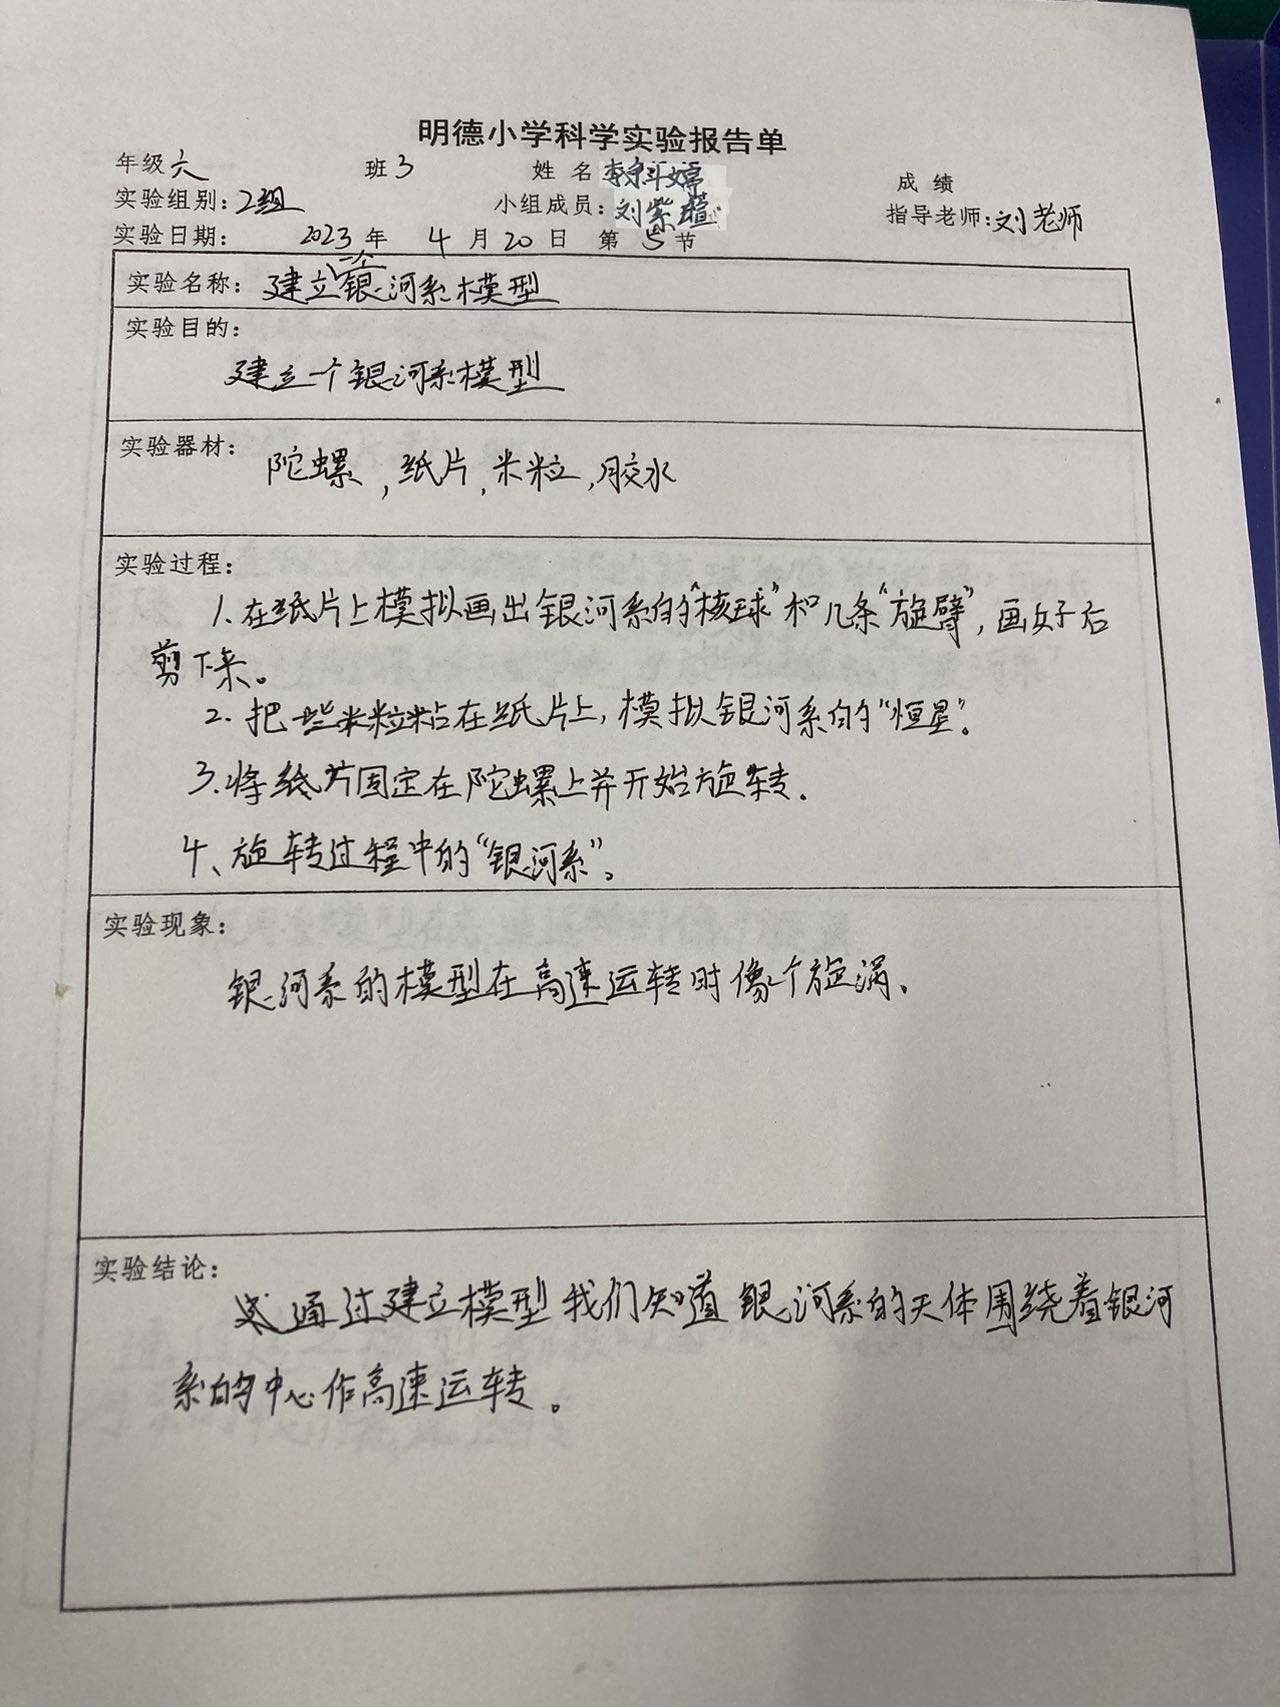 明德小学科学实验报告单
年级六 班3 姓名 李 婷 成绩
实验组别：2组 小组成员：刘紫萱 指导老师：刘老师
实验日期： 2023年 4月20日 第5节
实验名称：建立一个银河系模型
实验目的：
建立一个银河系模型
实验器材：
陀螺，纸片，米粒，胶水
实验过程：
1.在纸片上模拟画出银河系的“核球”和几条“旋臂”，画好后
剪下来。
2.把一些米粒粘在纸片上，模拟银河系的“恒星”。
3.将纸片固定在陀螺上并开始旋转.
4、旋转过程中的“银河系”。
实验现象：
银河系的模型在高速运转时像个旋涡、
实验结论：
通过建立模型我们知道银河系的天体围绕着银河
系的中心作高速运转。